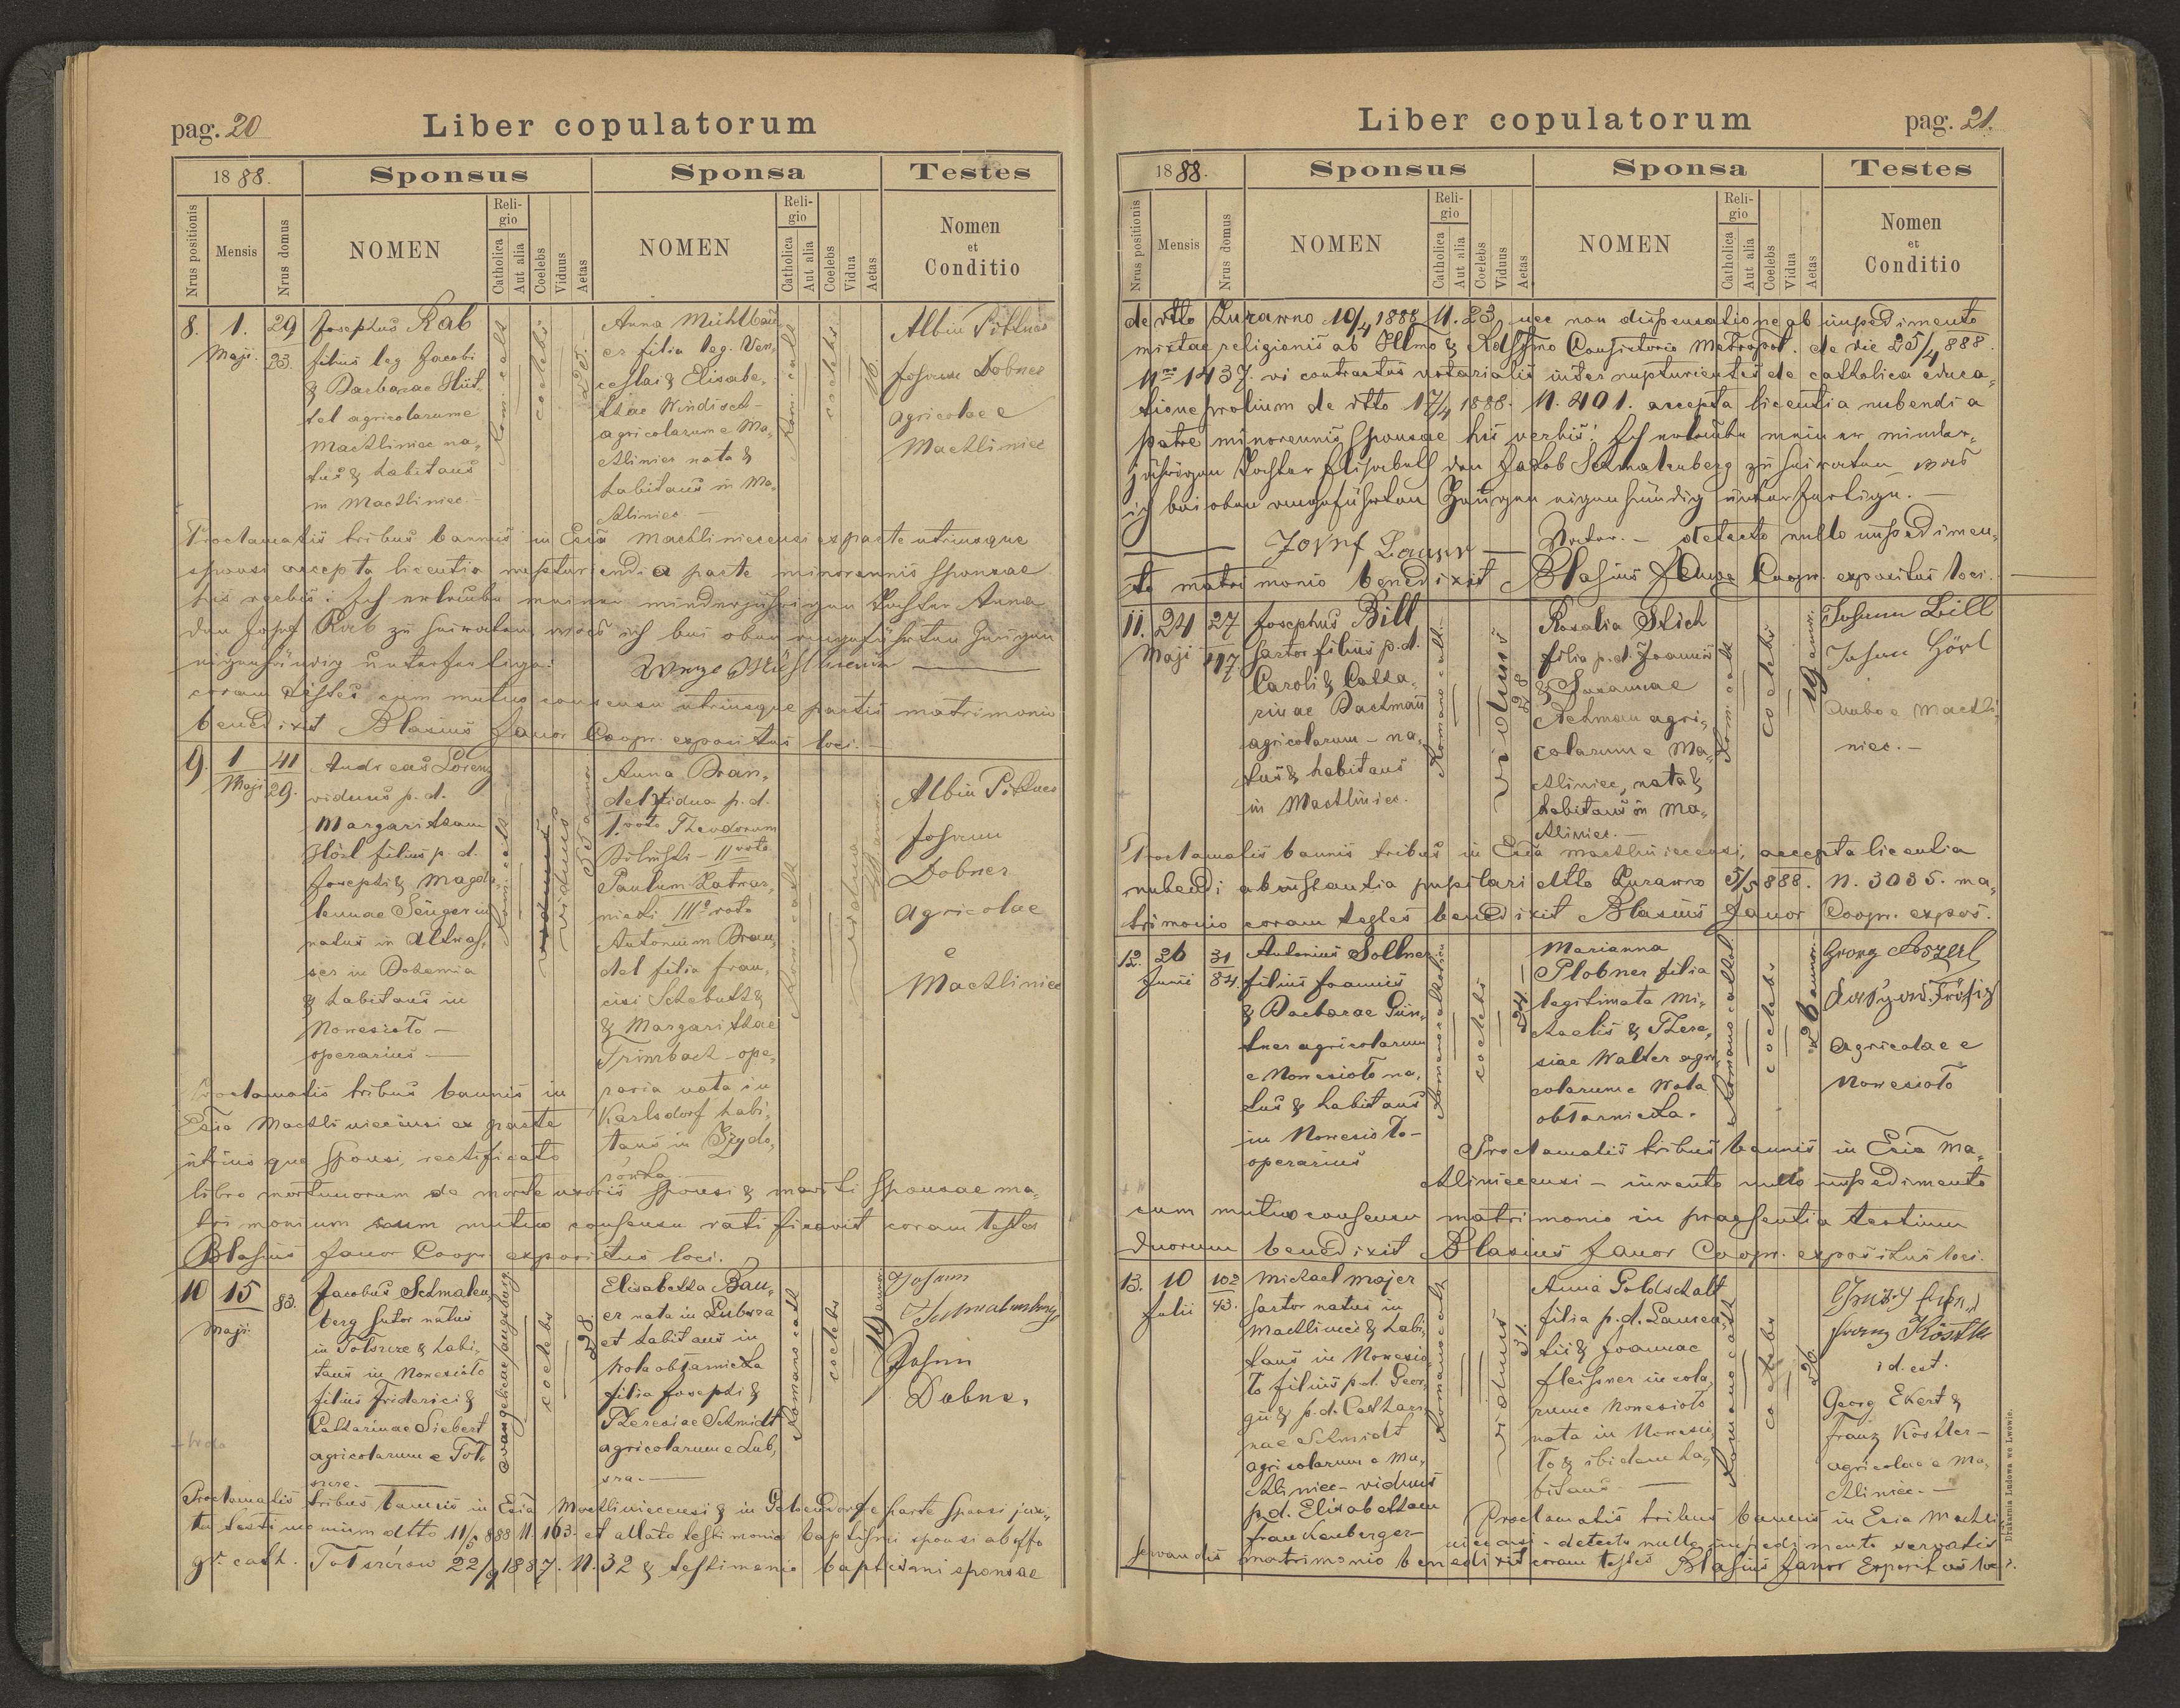 pag. 20
Liber copulatorum
1888.
Sponsus
Sponsa
Testes
Nrus positionis
Mensis
Nrus domus
NOMEN
Religio
Catholica
Aut alia
Coelebs
Viduus
Aetas
NOMEN
Religio
Catholica
Aut alia
Coelebs
Vidua
Aetas
Nomen
et
Conditio
8.
1.
Maji.
29
23.
Josephus Rab
filius leg Jacobi
& Barbarae Hüt-
tel agricolarum e
Machliniec na-
tus & habitans
in Machliniec.
Rom. cath
coelebs
Anna Mühlbau
er filia leg. Ven-
ceslai & Elisabe-
thae Windisch -
agricolarum e Ma-
chliniec nata &
habitans in Ma-
chliniec. -
Rom. cath
coelebs
Albin Pöttner
Johann Dobner
agricolae e
Machliniec
Proclamatis tribus bannis in Ecia Machliniecensi ex parte utriusque
sponsi accepta licentia nupturiendi a parte minorennis sponsae
his verbis: Ich erlaube meiner minderjährigen Tochter Anna
den Josef Rab zu heiraten, was ich bei oben angeführten Zeugen
eigenhändig unterfertige.
coram testes cum mutuo consensu utriusque partis matrimonio
benedixit Blasius Janor Coopr. expositus loci. -
9.
1
Maji
41
29.
Andreas Lorenz
viduus p. d.
Margaretham
Hösl filius p. d.
Josephi & Magda-
lennae Sengerin
natus in Altwas-
ser in Bohemia
& habitans in
Nowesioło -
operarius -
Rom. cath
viduus
Anna Bran-
del vidua p. d.
1. voto Theodorum
II voto
Paulum
III voto
Antonium Bran-
del filia fran-
cisi
& Margarithae
Trimbach - ope-
raria nata in
Karlsdorf habi-
tans in Żydo-
Rom. cath
vidua
Albin Pöttner
Johann
Dobner
Agricolae
e
Machliniec
Proclamatis tribus bannis in
Ecia Machliniecensi ex parte
utriusque sponsi, rectificato
libro mortuorum de morte uxoris sponsi & mariti sponsae ma-
trimonium cum mutuo consensu ratificavit coram testes
Blasius Janor Coopr. expositus loci.
10
15
Maji
83.
Jacobus Schmalen-
berg sutor natus
in Tołszczew & habi-
tans in Nowesioło
filius Friderici &
Catharinae Siebert
agricolarum e Toł-
coelebs
28.
Elisabetha Bau-
er nata in Lubsza
et habitans in
Wola obłamiecka
filia Josephi &
Theresiae Schmidt
agricolarum e Lub-
sza. -
Romano cath
coelebs
19 annor.
Johann
Schmalenberg
Johann
Dobner
Proclamatis tribus bannis in Ecia Machliniecensi & in Gelsendorf e parte sponsi juxi-
ta testimonium dtto 11/5 888 N. 163. et allato testimonio baptismi sponsi ab offo
gr. cath. Tołszczow 22/9 1887. N. 32 & testimonio baptismi sponsae
Liber copulatorum
pag. 21.
1888.
Sponsus
Sponsa
Testes
Nrus positionis
Mensis
Nrus domus
NOMEN
Religio
Catholica
Aut alia
Coelebs
Viduus
Aetas
NOMEN
Religio
Catholica
Aut alia
Coelebs
Vidua
Aetas
Nomen
et
Conditio
de dtto Żurawno 10/4 1888 N. 23, nec non dispensatione ab impedimento
mixtae religionis ab Illmo & Rdssmo Consistorio Metropol. de die 25/4 888.
Nro 1437. vi contractus notarialis inter nupturientes de catholica educa-
tione prolium de dtto 17/4 1888. N. 401. accepta licentia nubendi a
patre minorennis sponsae his verbis: Ich erlaube meiner minder-
jährigen Tochter Elisabeth den Jakob Schmalenberg zu heiraten was
ich bei oben angeführten Zeugen eigenhändig unterfertige. -
Josef Bauer - Vater. - detecto nullo impedimen-
to matrimonio benedixit Blasius Janor Coopr. expositus loci.
11.
24
Maji
27
117
Josephus Bill
sartor filius p. d.
Caroli & Catha-
rinae Bachman
agricolarum - na-
tus & habitans
in Machliniec.
Romano cath.
viduus
28
Rosalia Stich
filia p. d. Joannis
& Susannae
Achman agri-
colarum e Ma-
chliniec, nata &
habitans in Ma-
chliniec. -
Rom. cath
coelebs
19 annor.
Johann Bill
Johann Hösl
Ambo e Machli-
niec. -
Proclamatis bannis tribus in Ecia Machliniecensi, accepta licentia
nubendi ab instantia pupilari dtto Żurawno 5/5 888. N. 3035. ma-
trimonio coram testes benedixit Blasius Janor Coopr. expos.
12.
26
Junii
31
84.
Antonius Sollner
filius Joannis
& Barbarae Pün-
tner agricolarum
e Nowesioło na-
tus & habitans
in Nowesioło -
operarius
Romano catholicus
coelebs
24
Marianna
Plobner filia
legitimata Mi-
chaelis & There-
siae Walter agri-
colarum e Wola
obłarniecka.
Romano cathol.
coelebs
26 annor.
Agricolae e
Nowesioło
Proclamatis tribus bannis in Ecia Ma-
chliniecensi - invento nullo impedimento
cum mutuo consensu matrimonio in praesentia testium
duorum benedixit Blasius Janor Coopr. expositus loci.
13.
10
Julii
102
43.
Michael Majer
sartor natus in
Machliniec & habi-
tans in Nowesio-
ło filius p. d. Geor-
gii & p. d. Cathari-
nae Schmidt
agricolarum e Ma-
chliniec - viduus
p. d. Elisabetham
Frankenberger -
Romano cath
viduus
31.
Anna Goldschalt
filia p. d. Lauren-
tii & Joannae
Fleissner incola-
rum e Nowesioło
nata in Nowesio-
ło & ibidem ha-
bitans. -
Romano cath
coelebs
26.
Franz Köstler
id. est.
Georg Ekert &
Franz Köstler -
agricolae e Ma-
chliniec. -
Proclamatis tribus bannis in Ecia Machli-
niecensi - detecto nullo impedimento servatis
servandis matrimonio benedixit coram testes Blasius Janor Expositus loci.
Drukarnia Ludowa we Lwowie.